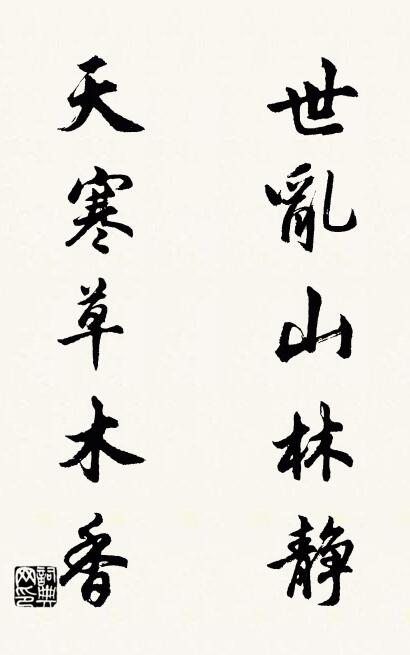 世亂山林靜
天寒草木香
詞典網印